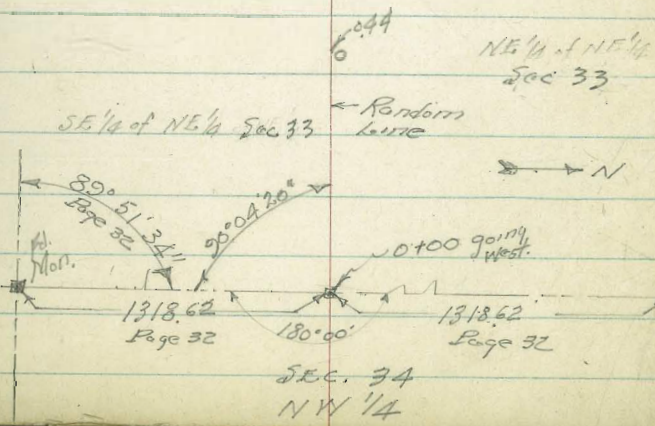 0.44
NE 1/4 of NE 1/4
Sec 33
← Random
Line
SE 1/4 of NE 1/4 Sec 33
N
89° 51' 34"
Page 32
90° 04' 20"
Fd.
Mon.
0+00 going
West.
1318.62
Page 32
180° 00'
1318.62
Page 32
SEC. 34
NW 1/4